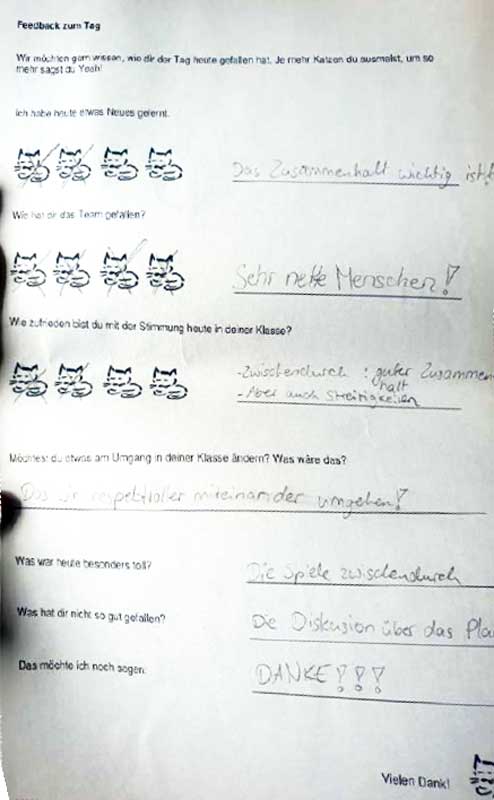 Feedback zum Tag
Wir möchten gern wissen, wie dir der Tag heute gefallen hat. Je mehr Katzen du ausmalst, um so
mehr sagst du Yeah!
Ich habe heute etwas Neues gelernt.
Das Zusammenhalt wichtig ist!
Wie hat dir das Team gefallen?
Sehr nette Menschen!
Wie zufrieden bist du mit der Stimmung heute in deiner Klasse?
-Zwischendurch : guter Zusammen
halt
-Aber auch Streitigkeiten
Möchtest du etwas am Umgang in deiner Klasse ändern? Was wäre das?
Das wir respektvoller miteinander umgehen!
Was war heute besonders toll?
Die Spiele zwischendurch
Was hat dir nicht so gut gefallen?
Die Diskusion über das Pla
Das möchte ich noch sagen:
DANKE!!!
Vielen Dank!